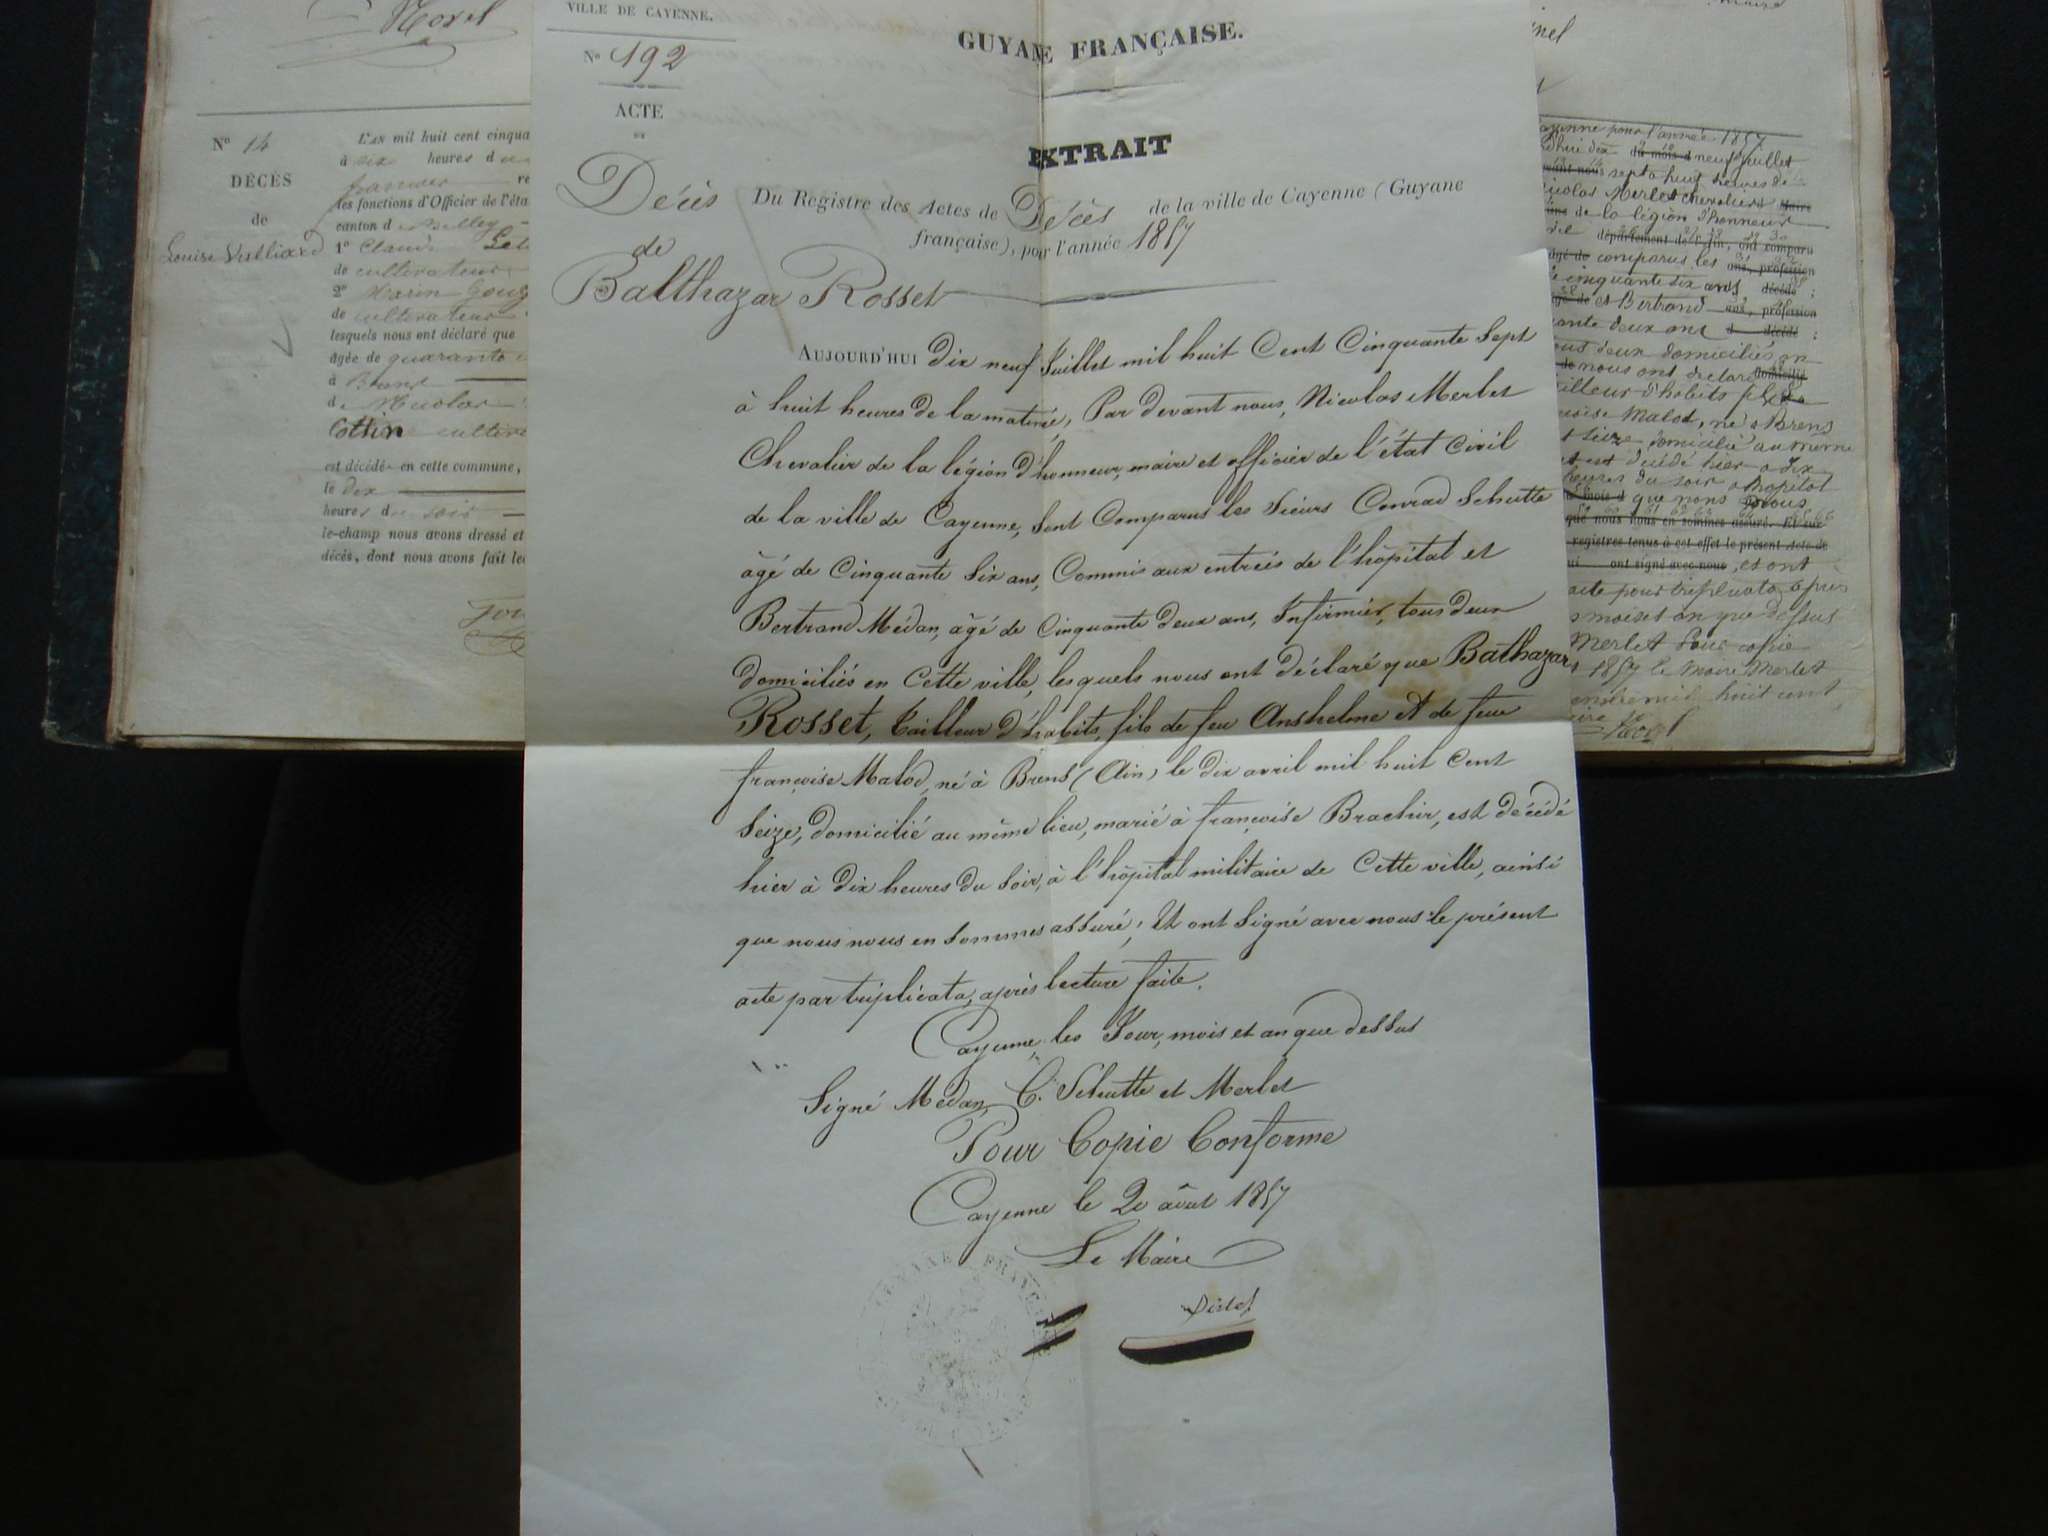 Morel
N° 14
DÉCÈS
de
Louise Vulliard
L'AN mil huit cent cinqua
à six heures d
janvier
les fonctions d'Officier de l'éta
canton d
1° Claude
de cultivateur
2° Marin
de cultivateur
lesquels nous ont déclaré que
âgée de quarante
à Brens
d Nicolas
Cottin cultiva
est décédée en cette commune,
le dix
heures du soir
le-champ nous avons dressé et
décès, dont nous avons fait lec
VILLE DE CAYENNE.
N° 192
ACTE
DE
Décès
de
Balthazar Rosset
GUYANE FRANÇAISE.
EXTRAIT
Du Registre des Actes de Décès de la ville de Cayenne (Guyane
française), pour l'année 1857
AUJOURD'HUI dix neuf Juillet mil huit Cent Cinquante Sept
à huit heures de la matinée, Par devant nous, Nicolas Merlet
Chevalier de la légion d'honneur, maire et officier de l'état Civil
de la ville de Cayenne, Sont Comparus les Sieurs Conrad Schutte
âgé de Cinquante Six ans, Commis aux entrées de l'hôpital et
Bertrand Médan, âgé de Cinquante deux ans, Infirmier, tous deux
domiciliés en Cette ville, lesquels nous ont déclaré que Balthazar
Rosset, tailleur d'habits, fils de feu Anshelme et de feue
françoise Malod, né à Brens (Ain) le dix avril mil huit Cent
Seize, domicilié au même lieu, marié à françoise Brachir, est décédé
hier à dix heures du Soir, à l'hôpital militaire de Cette ville, ainsi
que nous nous en Sommes assuré; Et ont Signé avec nous le présent
acte par triplicata, après lecture faite.
Cayenne, les Jour, mois et an que dessus
Signé Médan, C. Schutte et Merlet
Pour Copie Conforme
Cayenne le 20 août 1857
Le Maire
GUYANE FRANÇAISE
Cayenne pour l'année 1857
dix du mois d neuf juillet
sept a huit heures de
Nicolas Merlet chevalier
de la légion d'honneur
département de l'Ain, ont comparu
comparus les ans, profession
cinquante six ans décédé ;
et Bertrand ans, profession
ante deux ans d décédé ;
ous deux domiciliés en
nous ont déclaré domicilié
tailleur d'habits fils
Malod, né a Brens
seize domicilié au même
est décédé hier a dix
heures du soir a hopital
mois d que nous nous
que nous nous en sommes assuré. Et sur
registres tenus à cet effet le présent Acte de
ont signé avec nous, et ont
acte pour triplicata apres
mois et an que dessus
Merlet pour copie
1857 le Maire Merlet
huit cent
Morel